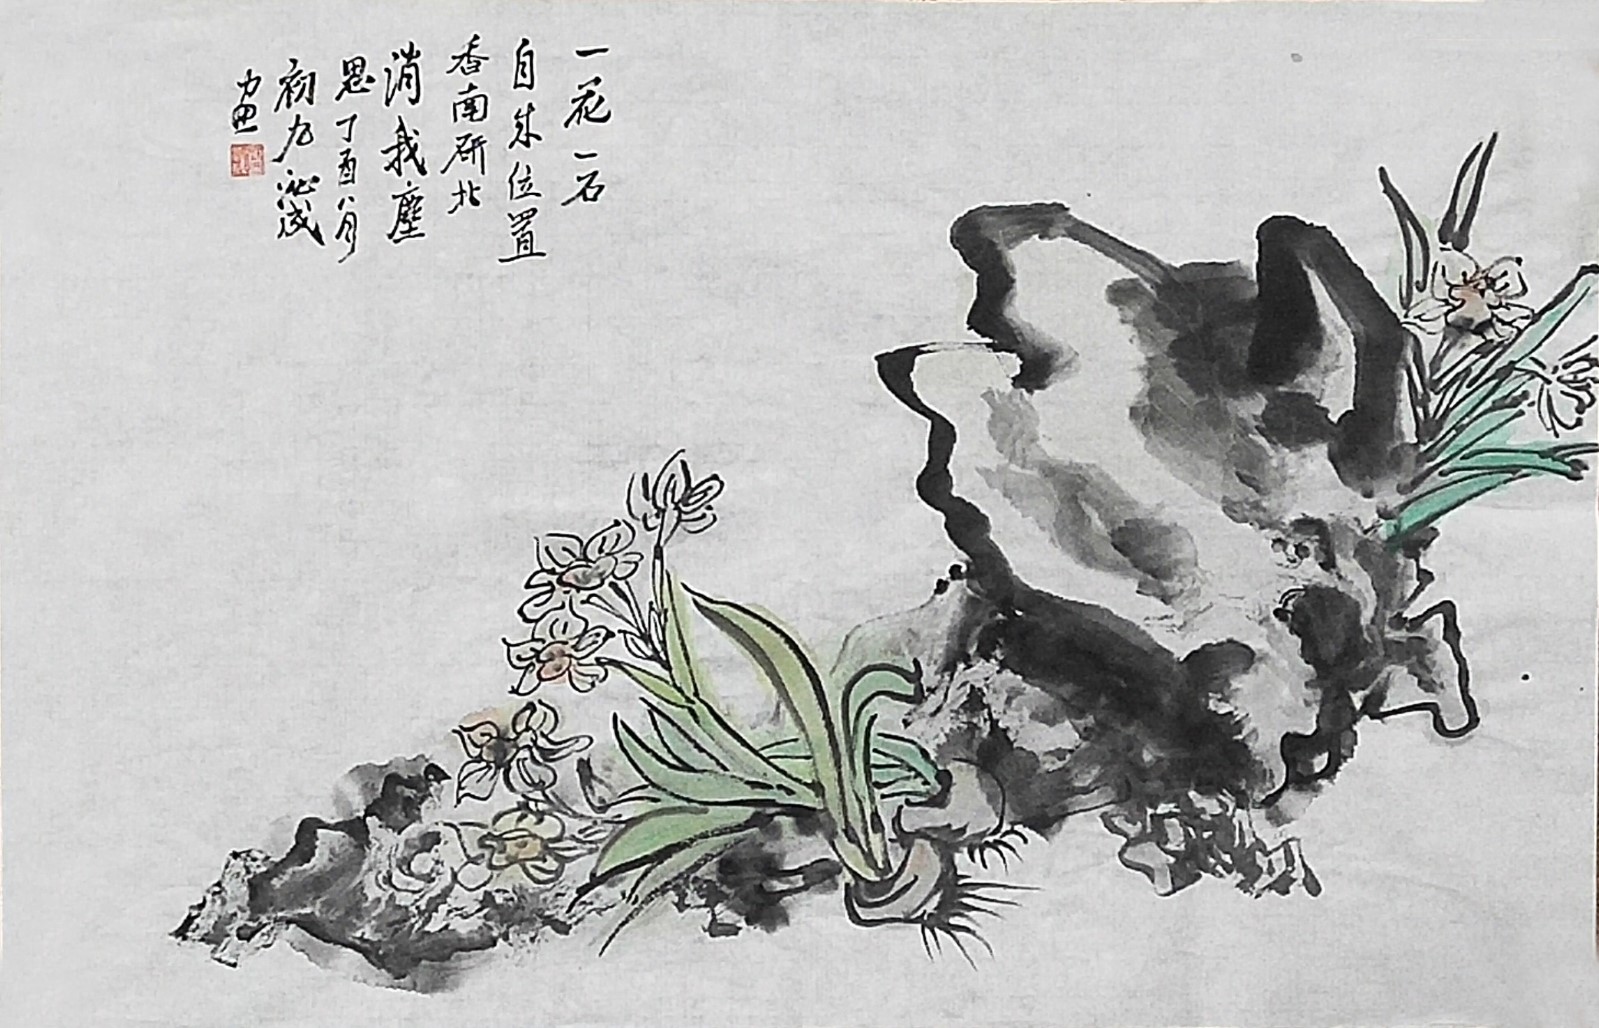 一花一石
自成位置
香南研北
消我塵
思丁酉八月
初九沁成
画